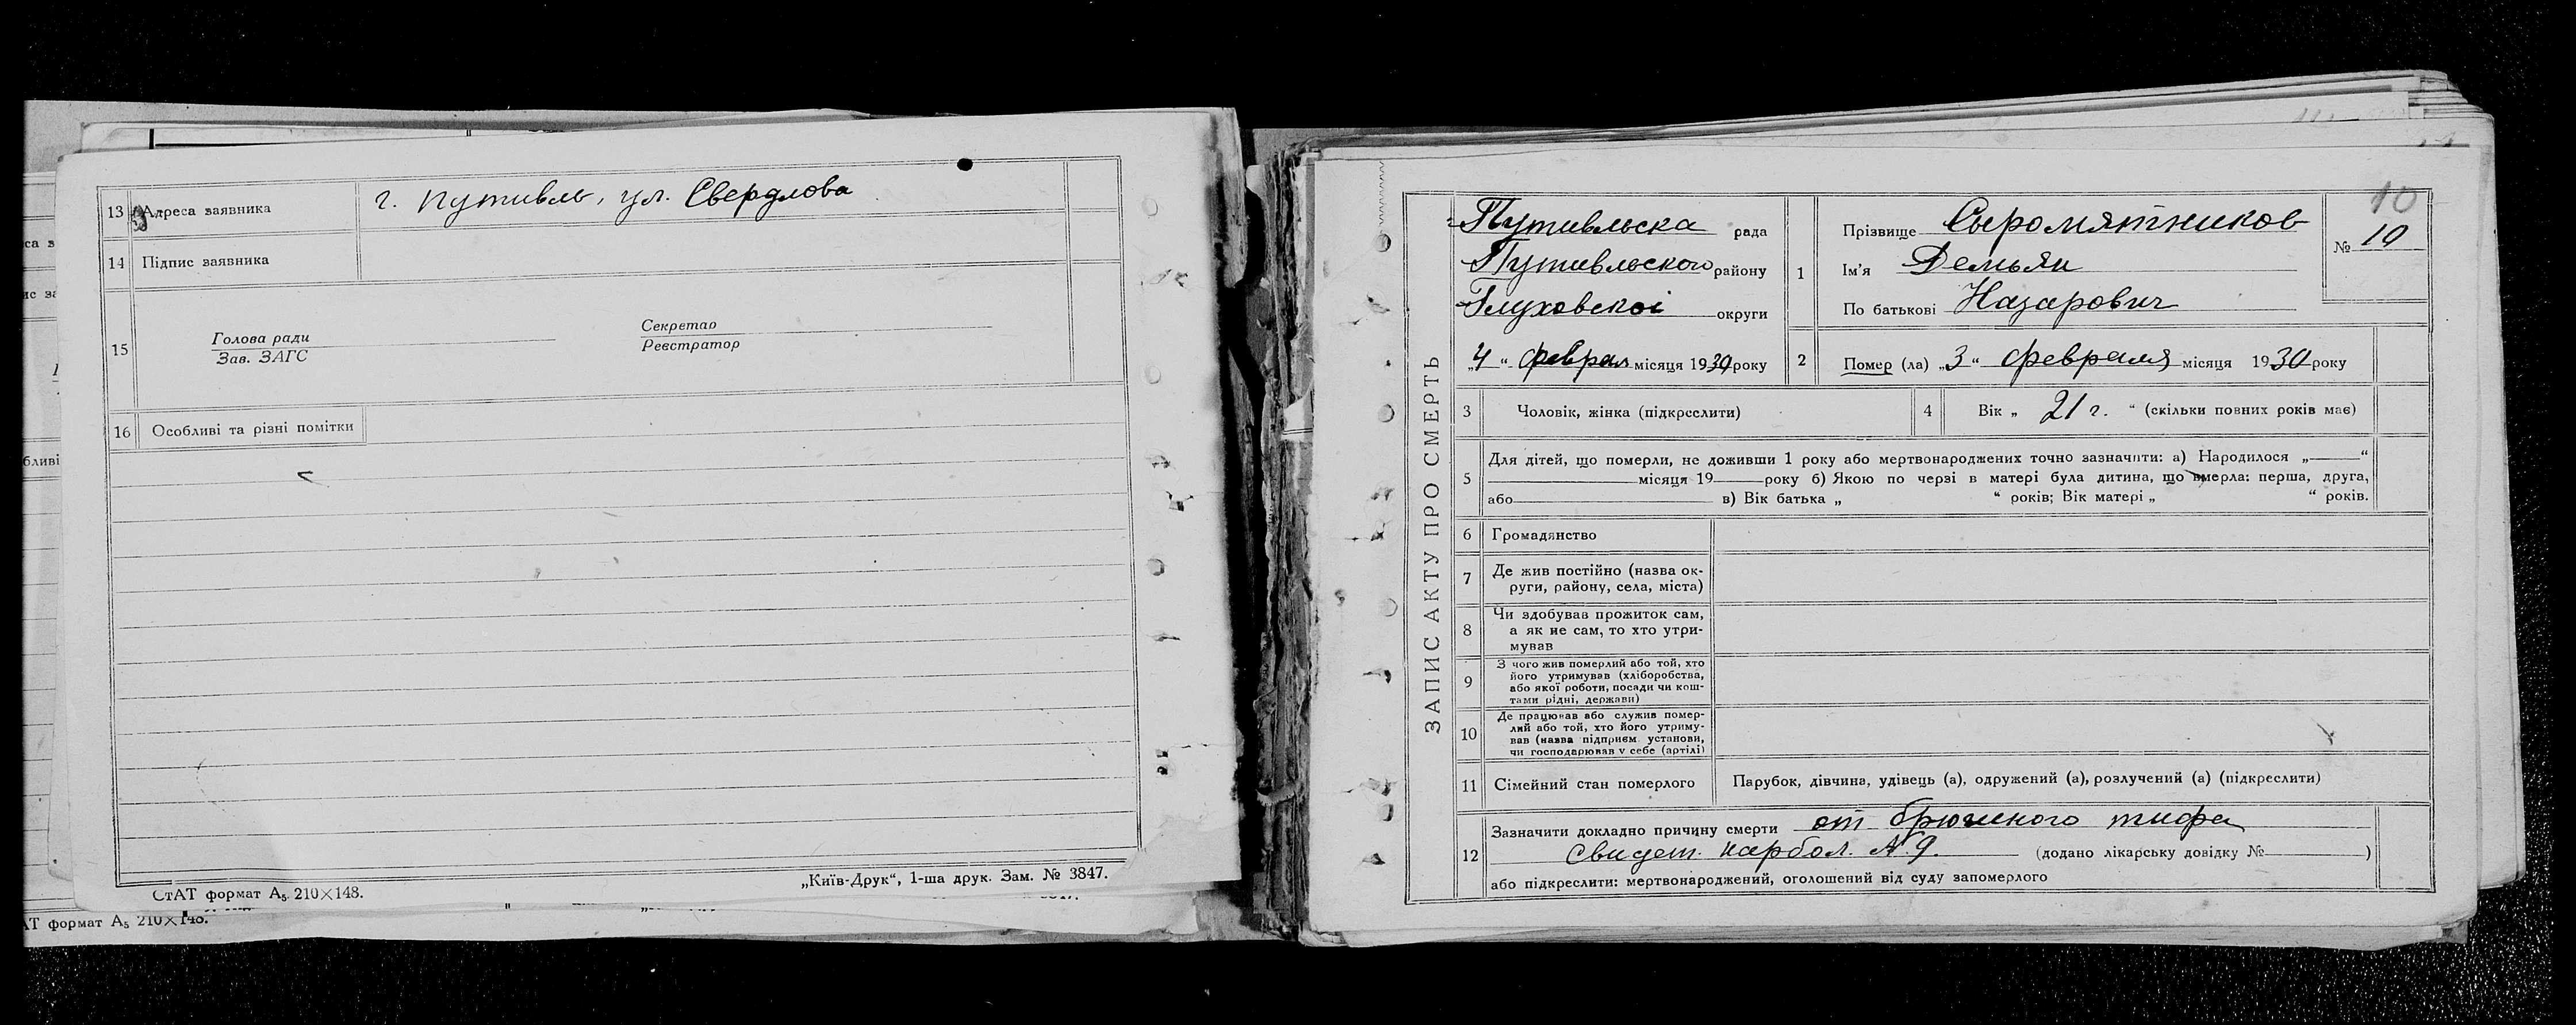 13 Адреса заявника г. Путивль, ул. Свердлова
14 Підпис заявника
15 Голова ради
Зав. ЗАГС
Секретар
Реєстратор
16 Особливі та різні помітки
СтАТ формат А5 210×148.
„Київ-Друк“, 1-ша друк. Зам. № 3847.
АТ формат А5 210×148.
ЗАПИС АКТУ ПРО СМЕРТЬ
Путивльска рада
Путивльского району
Глуховскоі округи
„4“ феврал місяця 1930 року
1 Прізвище Сыромятников
Ім'я Демьян
По батькові Назарович
10
№ 10
2 Помер (ла) „3“ февраля місяця 1930 року
3 Чоловік, жінка (підкреслити)
4 Вік „ 21 г. “ (скільки повних років має)
5 Для дітей, що померли, не доживши 1 року або мертвонароджених точно зазначити: а) Народилося „ “
місяця 19 року б) Якою по черзі в матері була дитина, що вмерла: перша, друга,
або в) Вік батька „ “ років; Вік матері „ “ років.
6 Громадянство
7 Де жив постійно (назва ок-
руги, району, села, міста)
8 Чи здобував прожиток сам,
а як не сам, то хто утри-
мував
9 З чого жив померлий або той, хто
його утримував (хліборобства,
або якої роботи, посади чи кош-
тами рідні, держави)
10 Де працював або служив помер-
лий або той, хто його утриму-
вав (назва підприєм. установи,
чи господарював у себе (артілі)
11 Сімейний стан померлого Парубок, дівчина, удівець (а), одружений (а), розлучений (а) (підкреслити)
12 Зазначити докладно причину смерти от брюшного тифа
Свидет. №9. (додано лікарську довідку № )
або підкреслити: мертвонароджений, оголошений від суду запомерлого